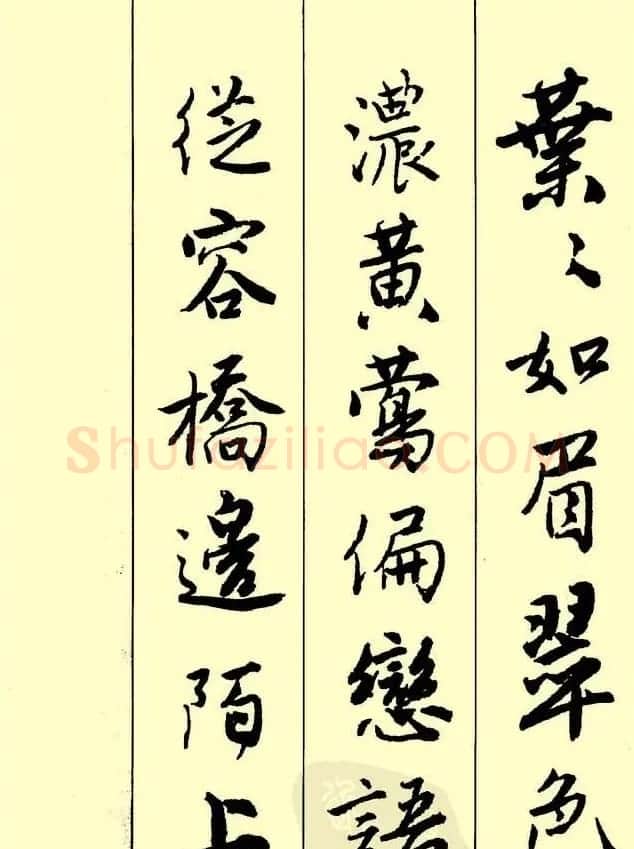 葉〻如眉翠色
濃黄鶯偏戀語
從容橋邊陌上
Shufaziliao.COM